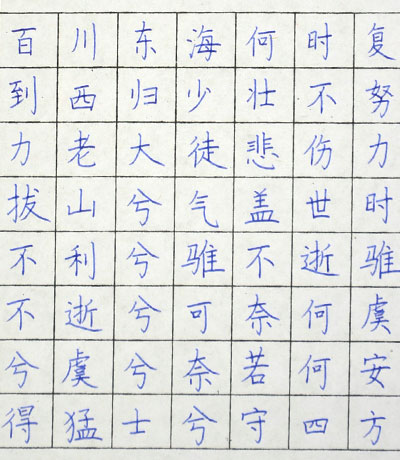 百川东海何时复
到西归少壮不努
力老大徒悲伤力
拔山兮气盖世时
不利兮骓不逝骓
不逝兮可奈何虞
兮虞兮奈若何安
得猛士兮守四方